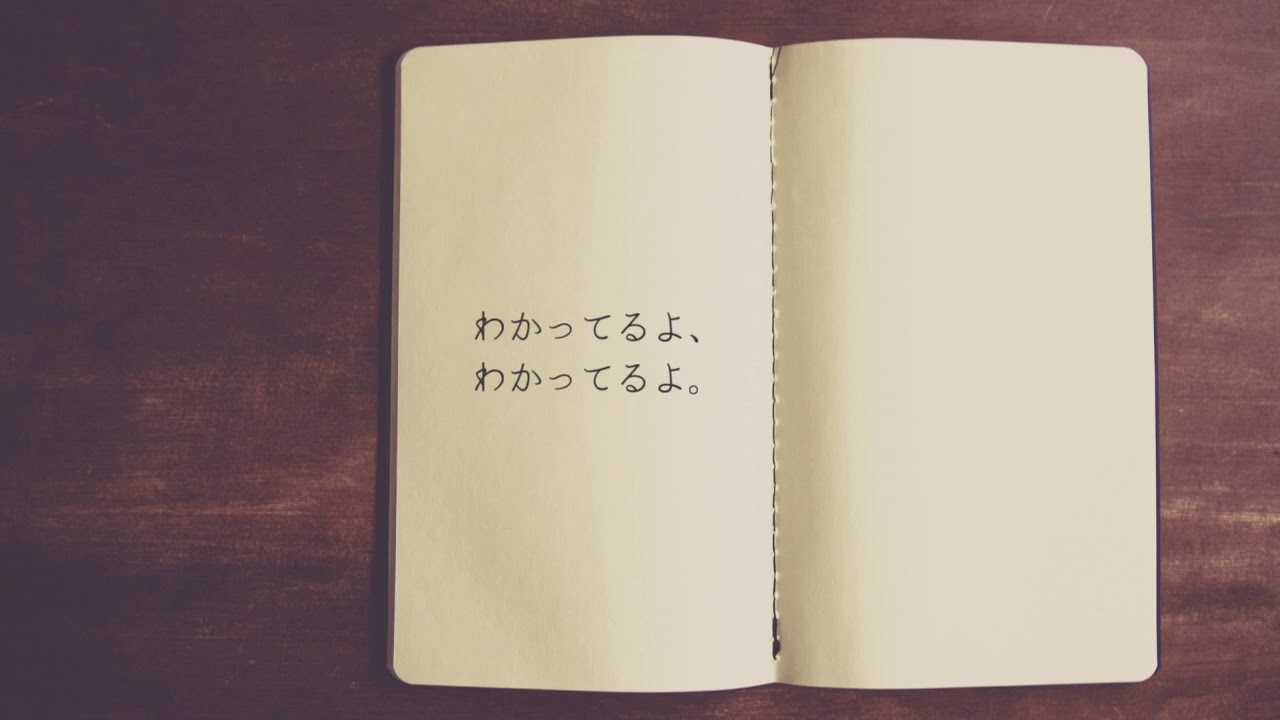 わかってるよ、
わかってるよ。